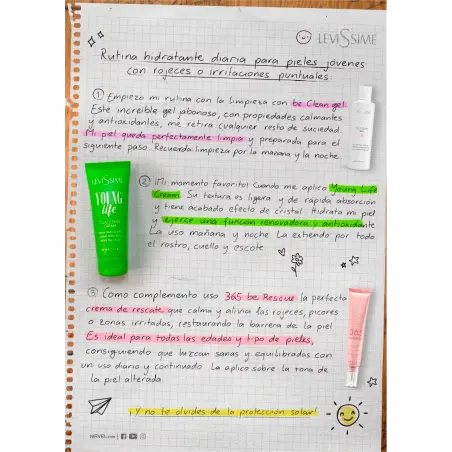 LEVISSIME
Rutina hidratante diaria para pieles jóvenes
con rojeces o irritaciones puntuales:
1 Empiezo mi rutina con la limpieza con be Clean gel.
Este increíble gel jabonoso, con propiedades calmantes
y antioxidantes, me retira cualquier resto de suciedad.
Mi piel queda perfectamente limpia y preparada para el
siguiente paso. Recuerda: limpieza por la mañana y la noche.
2 ¡Mi momento favorito! Cuando me aplico Young Life
Cream. Su textura es ligera y de rápida absorción
y tiene acabado efecto de cristal. Hidrata mi piel
y ejerce una función renovadora y antioxidante
La uso mañana y noche. La extiendo por todo
el rostro, cuello y escote
LEVISSIME
YOUNG
life
3 Como complemento uso 365 be Rescue la perfecta
crema de rescate que calma y alivia las rojeces, picores
o zonas irritadas, restaurando la barrera de la piel
Es ideal para todas las edades y tipo de pieles,
consiguiendo que luzcan sanas y equilibradas con
un uso diario y continuado. La aplico sobre la zona de
la piel alterada.
365
¡Y no te olvides de la protección solar!